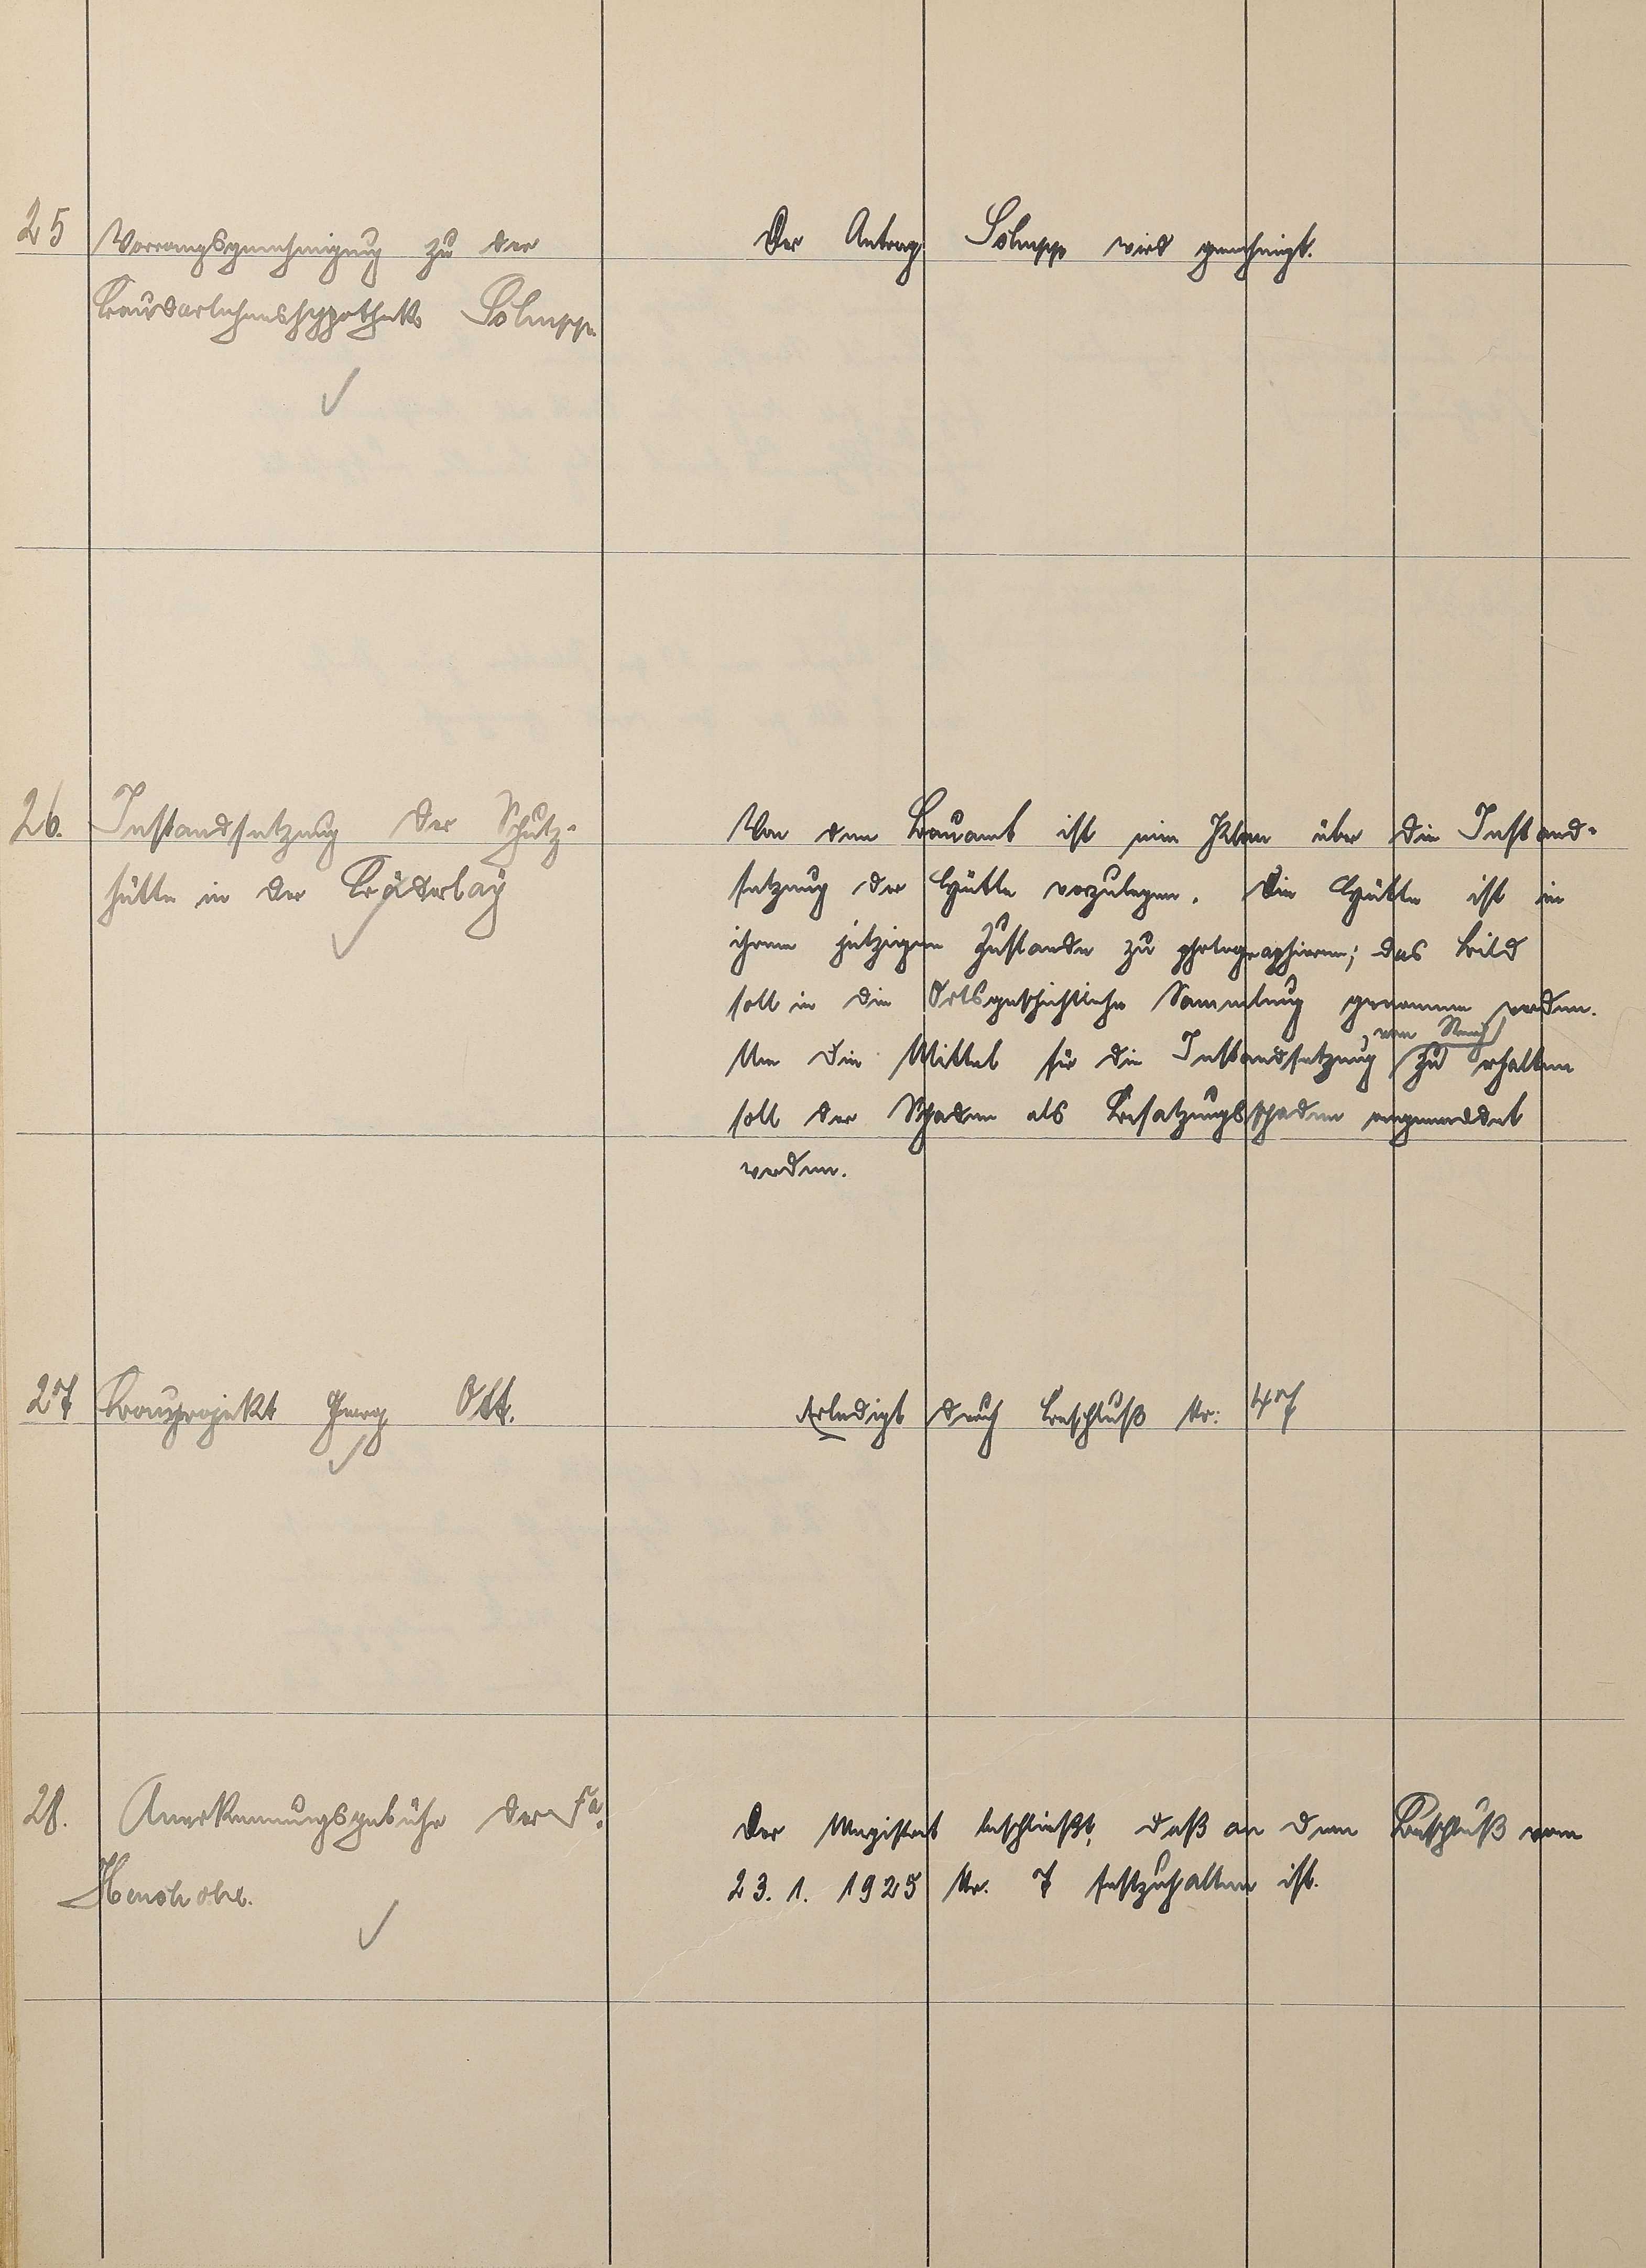 25 Vorrangsgenehmigung zu der
Baudarlehenshypothek Solmspp.
Der Antrag wird genehmigt.
26. Instandsetzung der Schutz-
hütte in der Bräderlay
Von dem Bauamt ist ein Plan über die Instand-
setzung der Hütte vorzulegen. Die Hütte ist in
ihrem jetzigen Zustande zu photographieren; das Bild
soll in die Ortsgeschichtliche Sammlung genommen werden.
Um die Mittel für die Instandsetzung vom Reich zu erhalten
soll der Schaden als Besatzungsschaden angemeldet
werden.
27 Bauprojekt Georg Ott.
Erledigt durch Beschluß Nr:
28. Anerkennungsgebühr der Fa.
Der Magistrat beschließt, daß an dem Beschluß vom
23. 1. 1925 Nr. 7 festzuhalten ist.